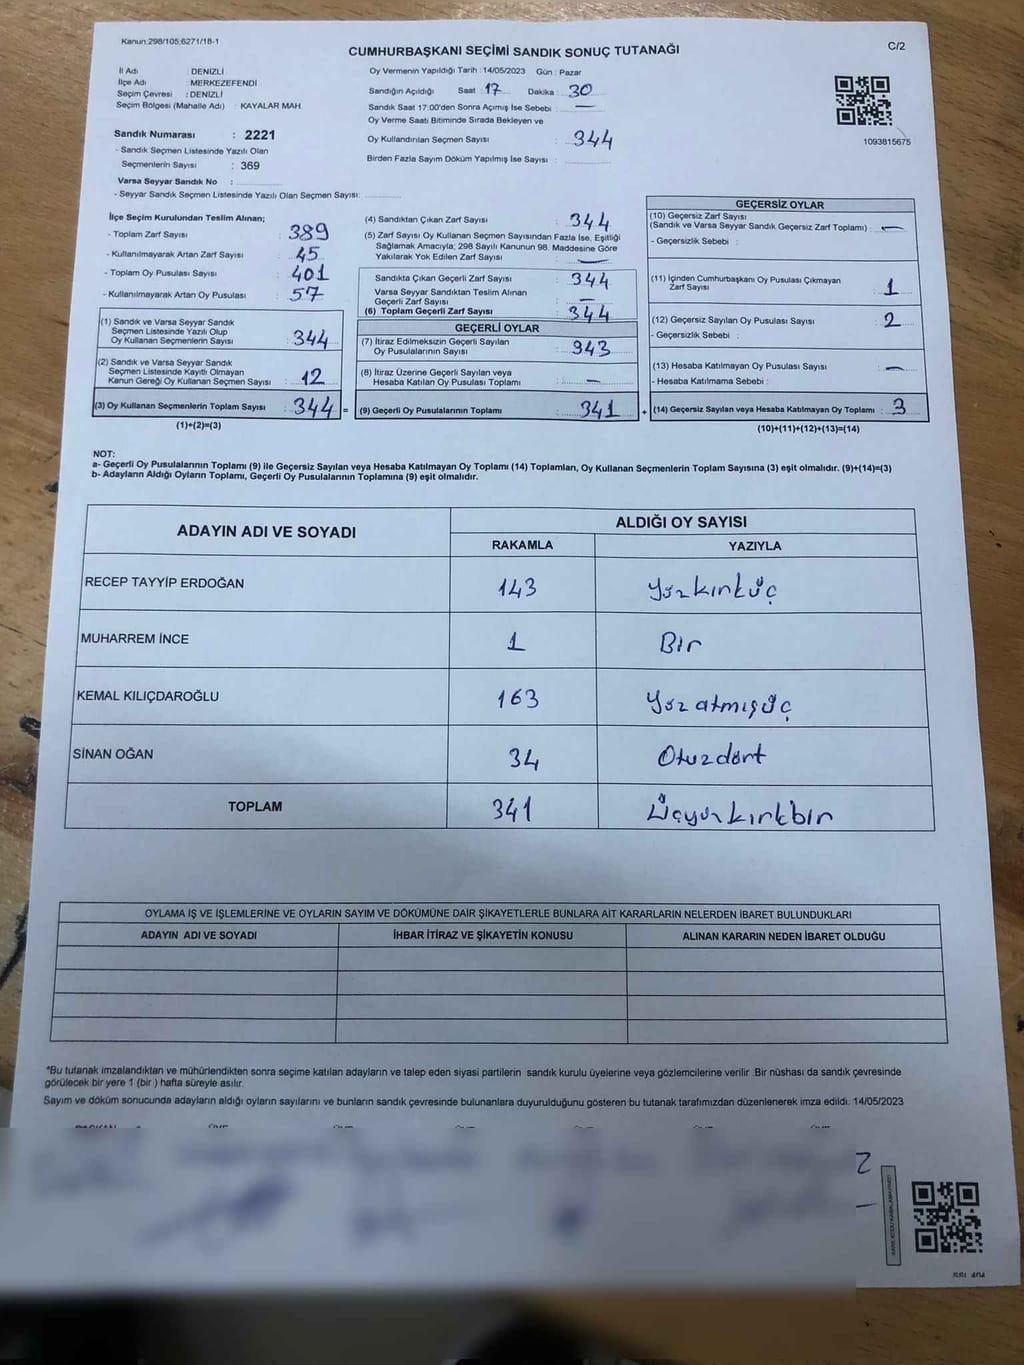 Kanun:298/105;6271/18-1
CUMHURBAŞKANI SEÇİMİ SANDIK SONUÇ TUTANAĞI
C/2
İl Adı : DENİZLİ
İlçe Adı : MERKEZEFENDİ
Seçim Çevresi : DENİZLİ
Seçim Bölgesi (Mahalle Adı) : KAYALAR MAH.
Sandık Numarası : 2221
- Sandık Seçmen Listesinde Yazılı Olan
Seçmenlerin Sayısı : 369
Varsa Seyyar Sandık No :
- Seyyar Sandık Seçmen Listesinde Yazılı Olan Seçmen Sayısı:
Oy Vermenin Yapıldığı Tarih : 14/05/2023 Gün : Pazar
Sandığın Açıldığı Saat : 17 Dakika : 30
Sandık Saat 17:00'den Sonra Açımış İse Sebebi : —
Oy Verme Saati Bitiminde Sırada Bekleyen ve
Oy Kullandırılan Seçmen Sayısı : 344
Birden Fazla Sayım Döküm Yapılmış İse Sayısı :
1093815675
İlçe Seçim Kurulundan Teslim Alınan;
- Toplam Zarf Sayısı : 389
- Kullanılmayarak Artan Zarf Sayısı : 45
- Toplam Oy Pusulası Sayısı : 401
- Kullanılmayarak Artan Oy Pusulası : 57
(1) Sandık ve Varsa Seyyar Sandık
Seçmen Listesinde Yazılı Olup
Oy Kullanan Seçmenlerin Sayısı : 344
(2) Sandık ve Varsa Seyyar Sandık
Seçmen Listesinde Kayıtlı Olmayan
Kanun Gereği Oy Kullanan Seçmen Sayısı : 12
(3) Oy Kullanan Seçmenlerin Toplam Sayısı : 344 =
(1)+(2)=(3)
(4) Sandıktan Çıkan Zarf Sayısı : 344
(5) Zarf Sayısı Oy Kullanan Seçmen Sayısından Fazla İse, Eşitliği
Sağlamak Amacıyla; 298 Sayılı Kanunun 98. Maddesine Göre
Yakılarak Yok Edilen Zarf Sayısı : —
Sandıkta Çıkan Geçerli Zarf Sayısı : 344
Varsa Seyyar Sandıktan Teslim Alınan
Geçerli Zarf Sayısı : —
(6) Toplam Geçerli Zarf Sayısı : 344
GEÇERLİ OYLAR
(7) İtiraz Edilmeksizin Geçerli Sayılan
Oy Pusulalarının Sayısı : 343
(8) İtiraz Üzerine Geçerli Sayılan veya
Hesaba Katılan Oy Pusulası Toplamı : —
(9) Geçerli Oy Pusulalarının Toplamı : 341 +
GEÇERSİZ OYLAR
(10) Geçersiz Zarf Sayısı
(Sandık ve Varsa Seyyar Sandık Geçersiz Zarf Toplamı) : —
- Geçersizlik Sebebi :
(11) İçinden Cumhurbaşkanı Oy Pusulası Çıkmayan
Zarf Sayısı : 1
(12) Geçersiz Sayılan Oy Pusulası Sayısı : 2
- Geçersizlik Sebebi :
(13) Hesaba Katılmayan Oy Pusulası Sayısı : —
- Hesaba Katılmama Sebebi :
(14) Geçersiz Sayılan veya Hesaba Katılmayan Oy Toplamı : 3
(10)+(11)+(12)+(13)=(14)
NOT:
a- Geçerli Oy Pusulalarının Toplamı (9) ile Geçersiz Sayılan veya Hesaba Katılmayan Oy Toplamı (14) Toplamları, Oy Kullanan Seçmenlerin Toplam Sayısına (3) eşit olmalıdır. (9)+(14)=(3)
b- Adayların Aldığı Oyların Toplamı, Geçerli Oy Pusulalarının Toplamına (9) eşit olmalıdır.
ADAYIN ADI VE SOYADI
ALDIĞI OY SAYISI
RAKAMLA YAZIYLA
RECEP TAYYİP ERDOĞAN 143 Yüzkırküç
MUHARREM İNCE 1 Bir
KEMAL KILIÇDAROĞLU 163 Yüzatmışüç
SİNAN OĞAN 34 Otuzdört
TOPLAM 341 Üçyüzkırkbir
OYLAMA İŞ VE İŞLEMLERİNE VE OYLARIN SAYIM VE DÖKÜMÜNE DAİR ŞİKAYETLERLE BUNLARA AİT KARARLARIN NELERDEN İBARET BULUNDUKLARI
ADAYIN ADI VE SOYADI İHBAR İTİRAZ VE ŞİKAYETİN KONUSU ALINAN KARARIN NEDEN İBARET OLDUĞU
*Bu tutanak imzalandıktan ve mühürlendikten sonra seçime katılan adayların ve talep eden siyasi partilerin sandık kurulu üyelerine veya gözlemcilerine verilir .Bir nüshası da sandık çevresinde
görülecek bir yere 1 (bir ) hafta süreyle asılır.
Sayım ve döküm sonucunda adayların aldığı oyların sayılarını ve bunların sandık çevresinde bulunanlara duyurulduğunu gösteren bu tutanak tarafımızdan düzenlenerek imza edildi. 14/05/2023